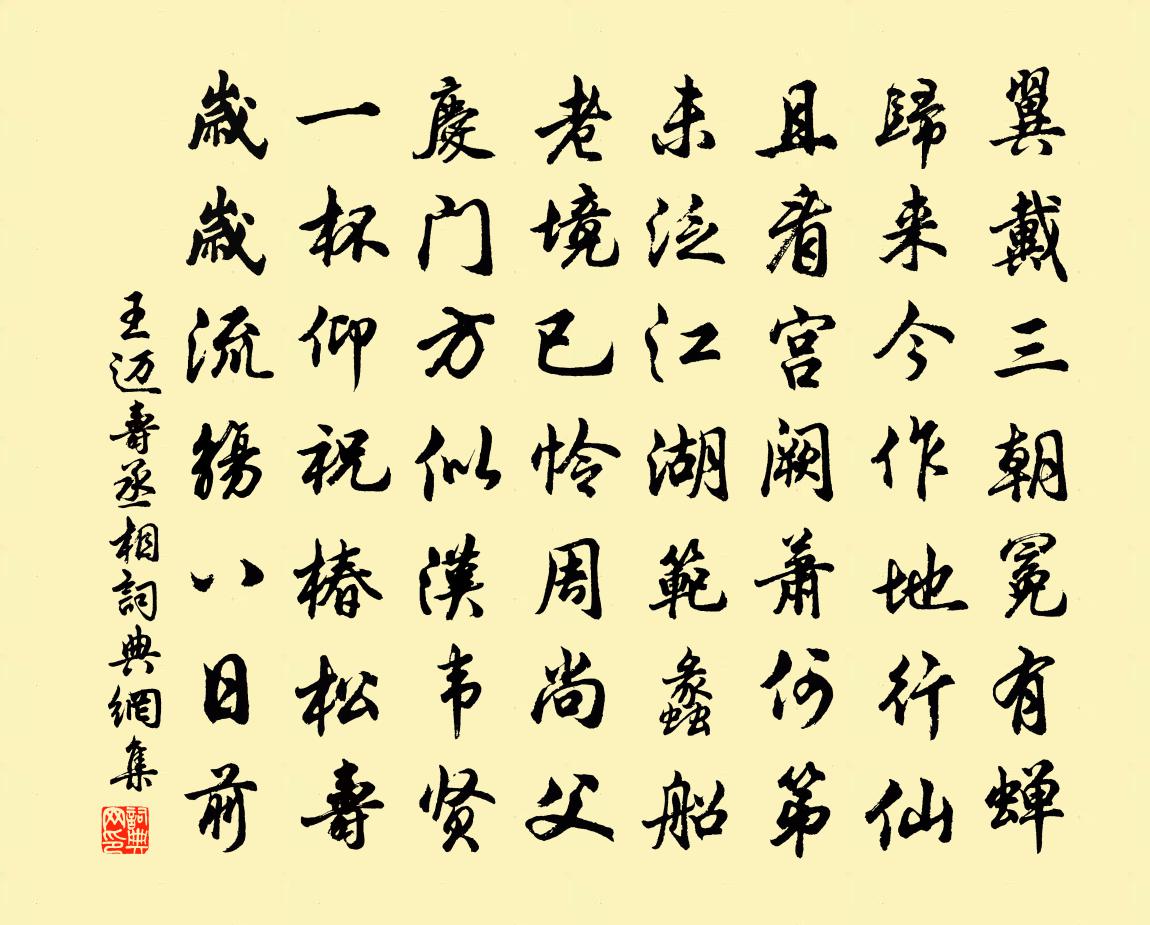 翼戴三朝冕有蝉
歸来今作地行仙
且看宫阙萧何第
未泛江湖範蠡船
老境已怜周尚父
慶门方似漢韦贤
一杯仰祝椿松壽
歲歲流觴八日前
王迈壽丞相詞典網集
詞典网印